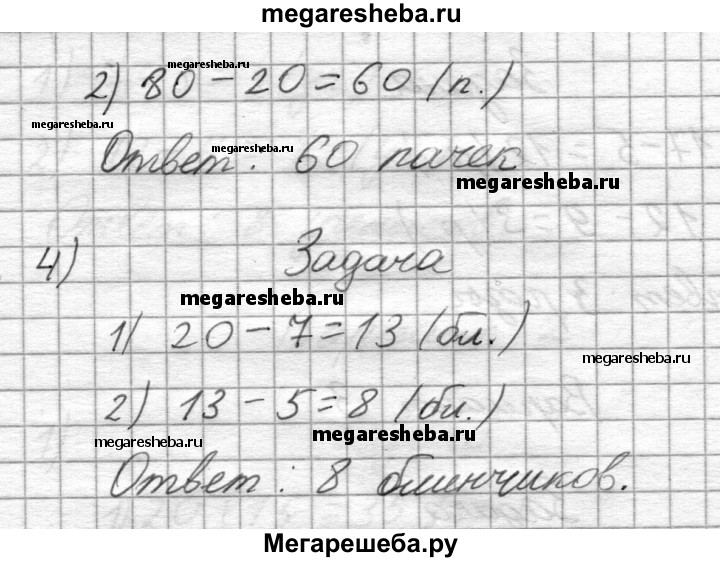 megaresheba.ru
megaresheba.ru
2) 80 - 20 = 60 (п.)
megaresheba.ru
megaresheba.ru
Ответ: 60 пачек
megaresheba.ru
4) Задача
megaresheba.ru
1) 20 - 7 = 13 (бл.)
megaresheba.ru
2) 13 - 5 = 8 (бл.)
megaresheba.ru
megaresheba.ru
Ответ: 8 блинчиков.
Мегарешеба.ру